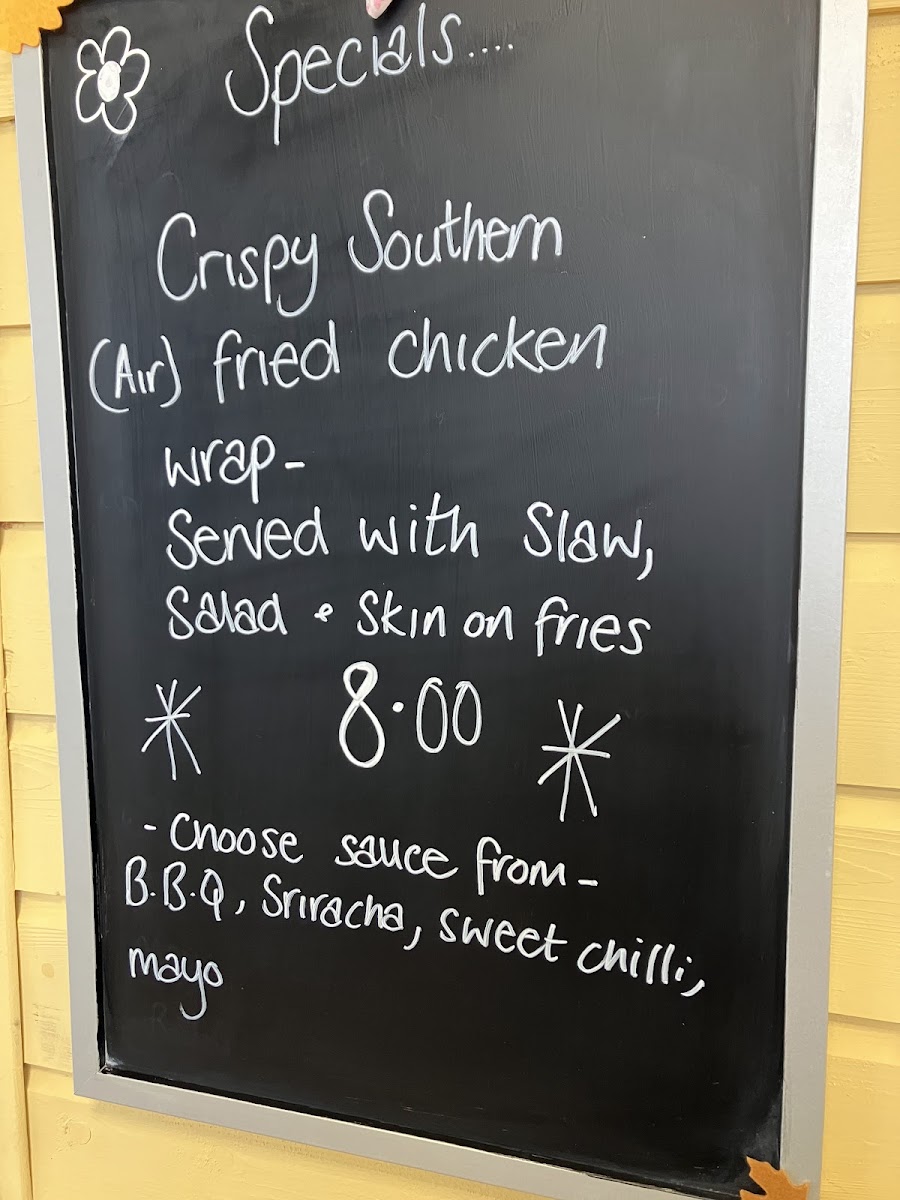 Specials....
Crispy Southern
(Air) fried chicken
wrap-
Served with Slaw,
Salad & Skin on fries
8.00
- Choose sauce from -
B.B.Q, Sriracha, sweet chilli,
mayo